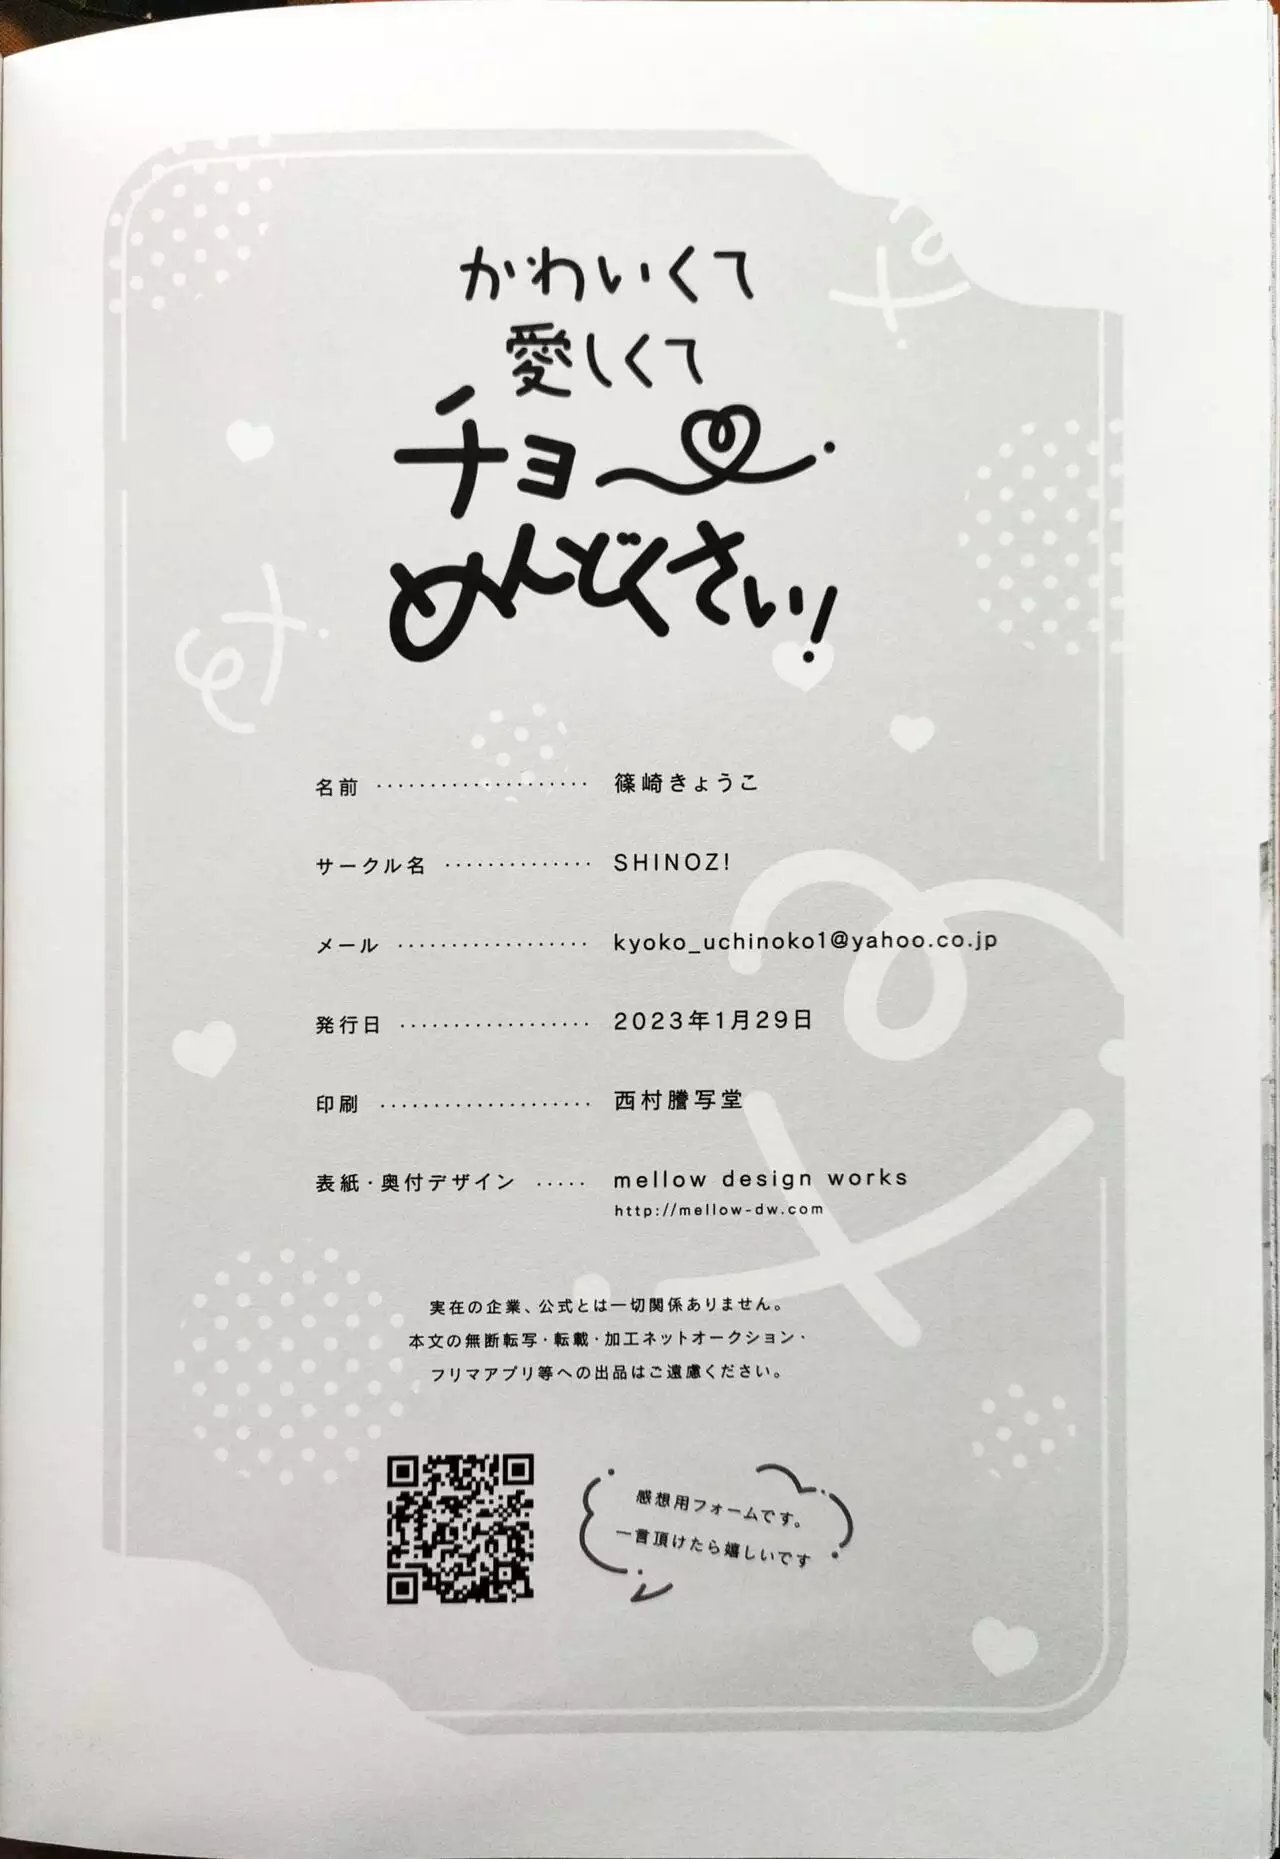 かわいくて
愛しくて
チョー
めんどくさい!
名前 ···················· 篠崎きょうこ
サークル名 ·············· SHINOZ!
メール ·················· kyoko_uchinoko1@yahoo.co.jp
発行日 ·················· 2023年1月29日
印刷 ···················· 西村謄写堂
表紙・奥付デザイン ····· mellow design works
http://mellow-dw.com
実在の企業、公式とは一切関係ありません。
本文の無断転写・転載・加工ネットオークション・
フリマアプリ等への出品はご遠慮ください。
感想用フォームです。
一言頂けたら嬉しいです